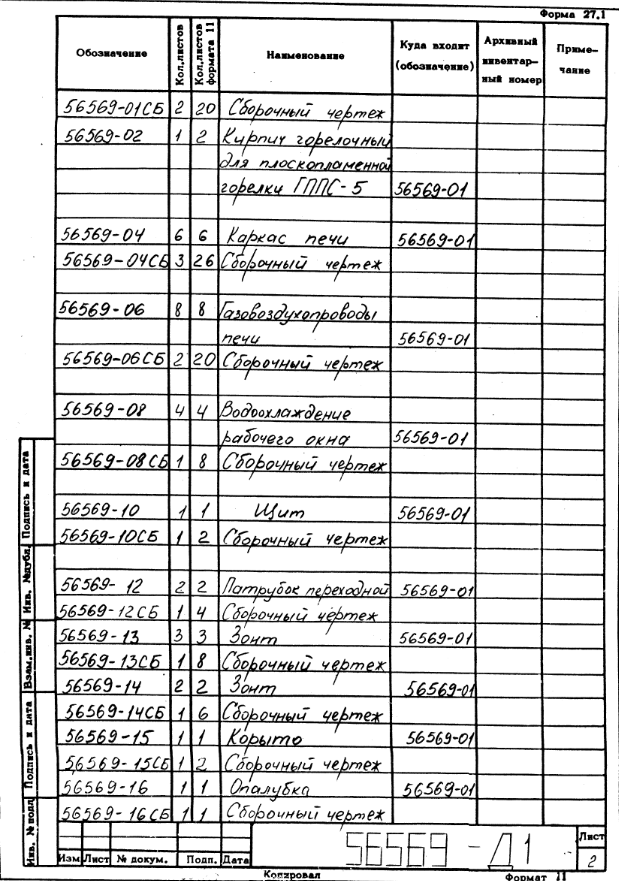 Форма 27.1
Обозначение Кол.листов Кол.листов формата 11 Наименование Куда входит (обозначение) Архивный инвентар-ный номер Приме-чание
56569-01СБ 2 20 Сборочный чертеж
56569-02 1 2 Кирпич горелочный
для плоскопламенной
горелки ГППС-5 56569-01
56569-04 6 6 Каркас печи 56569-01
56569-04СБ 3 26 Сборочный чертеж
56569-06 8 8 Газовоздухопроводы
печи 56569-01
56569-06СБ 2 20 Сборочный чертеж
56569-08 4 4 Водоохлаждение
рабочего окна 56569-01
56569-08СБ 1 8 Сборочный чертеж
56569-10 1 1 Щит 56569-01
56569-10СБ 1 2 Сборочный чертеж
56569-12 2 2 Патрубок переходной 56569-01
56569-12СБ 1 4 Сборочный чертеж
56569-13 3 3 Зонт 56569-01
56569-13СБ 1 8 Сборочный чертеж
56569-14 2 2 Зонт 56569-01
56569-14СБ 1 6 Сборочный чертеж
56569-15 1 1 Корыто 56569-01
56569-15СБ 1 2 Сборочный чертеж
56569-16 1 1 Опалубка 56569-01
56569-16СБ 1 1 Сборочный чертеж
Инв. № подл. Подпись и дата Взам.инв. № Инв. №дубл. Подпись и дата
56569-Д1
Лист
2
Изм Лист № докум. Подп. Дата
Копировал Формат 11